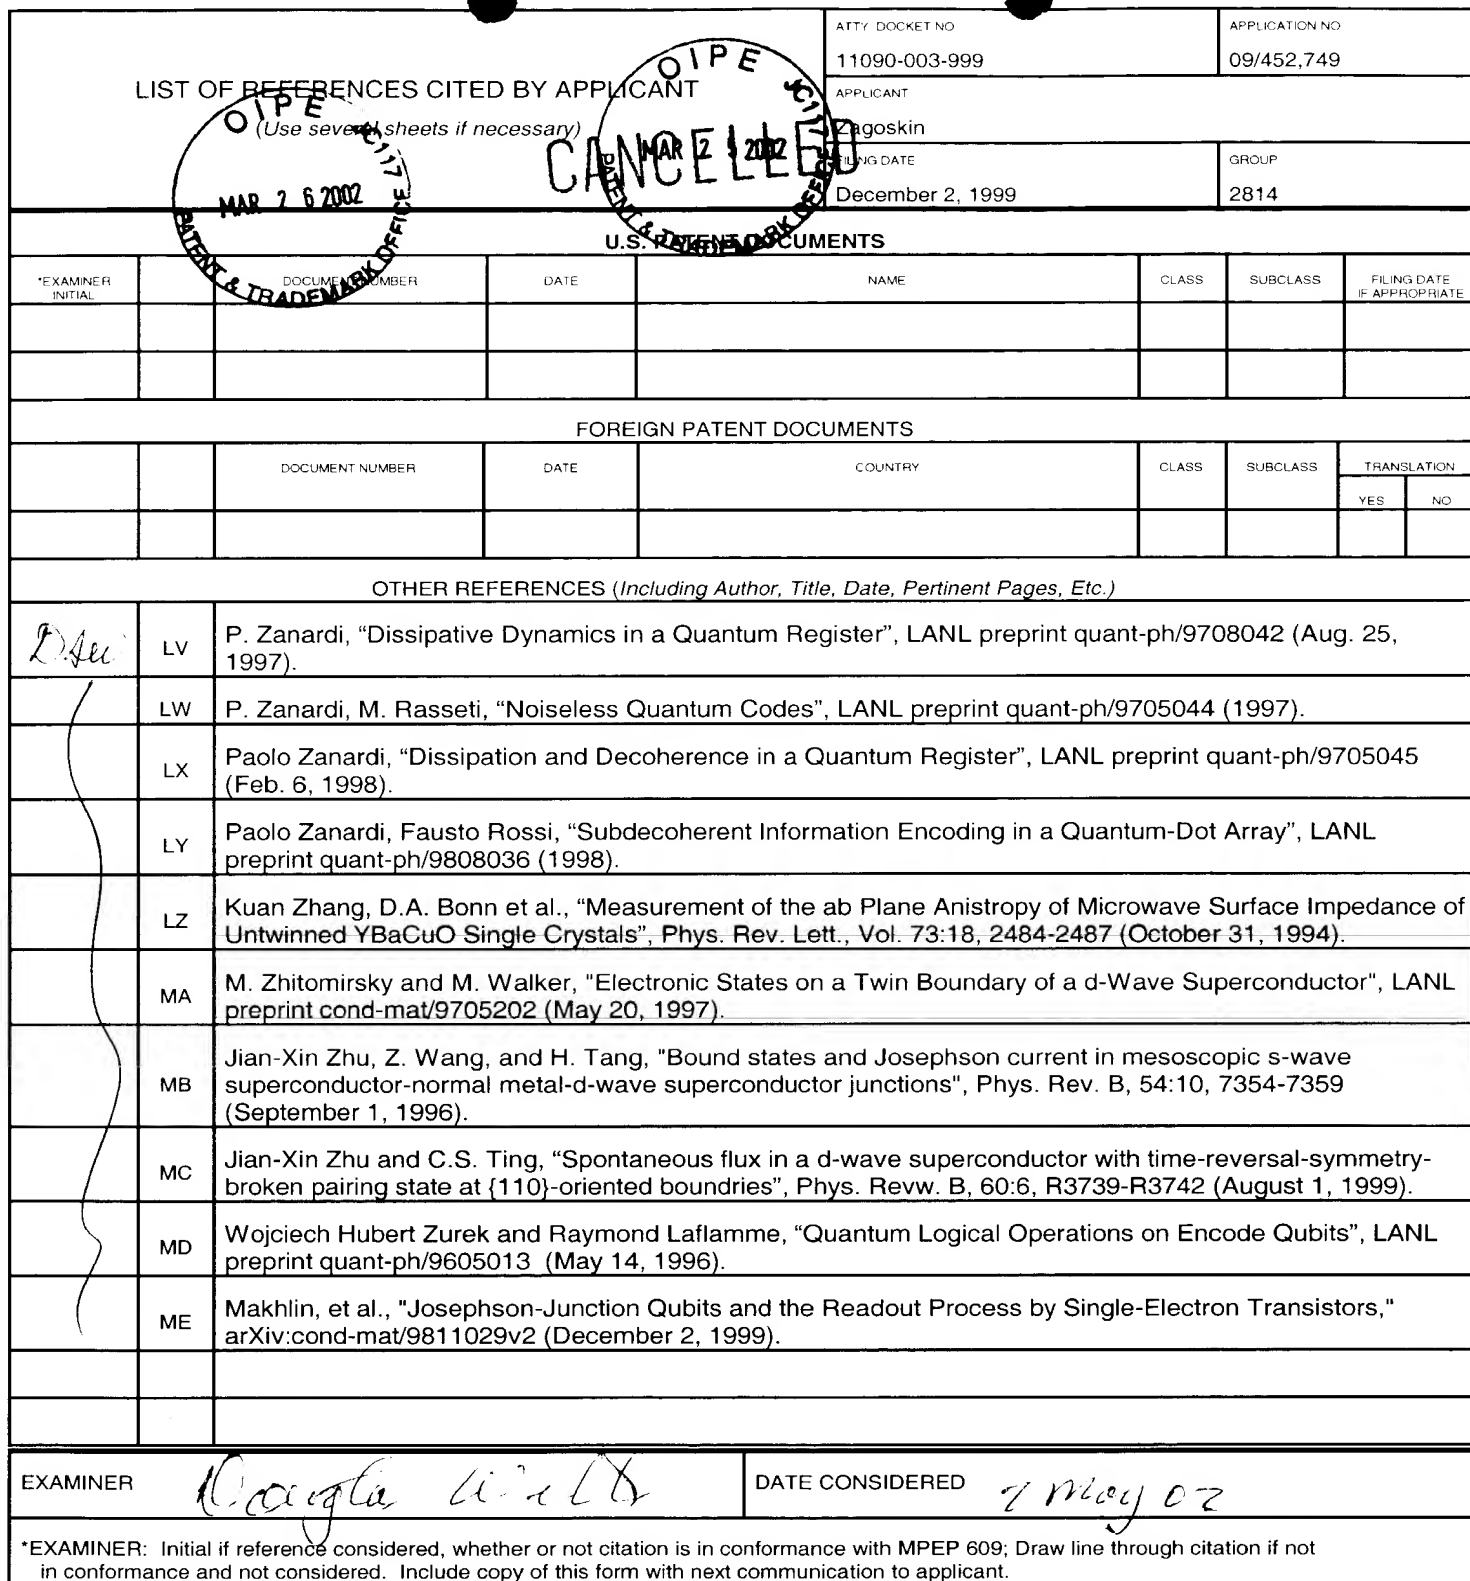 ATTY DOCKET NO
11090-003-999
APPLICATION NO
09/452,749
LIST OF REFERENCES CITED BY APPLICANT
(Use several sheets if necessary)
APPLICANT
Zagoskin
FILING DATE
December 2, 1999
GROUP
2814
OIPE JC117
MAR 26 2002
PATENT & TRADEMARK OFFICE
OIPE JC117
MAR 2 2002
PATENT & TRADEMARK OFFICE
CANCELLED
U.S. PATENT DOCUMENTS
*EXAMINER INITIAL
DOCUMENT NUMBER
DATE
NAME
CLASS
SUBCLASS
FILING DATE IF APPROPRIATE
FOREIGN PATENT DOCUMENTS
DOCUMENT NUMBER
DATE
COUNTRY
CLASS
SUBCLASS
TRANSLATION
YES
NO
OTHER REFERENCES (Including Author, Title, Date, Pertinent Pages, Etc.)
LV
P. Zanardi, “Dissipative Dynamics in a Quantum Register”, LANL preprint quant-ph/9708042 (Aug. 25,
1997).
LW
P. Zanardi, M. Rasseti, “Noiseless Quantum Codes”, LANL preprint quant-ph/9705044 (1997).
LX
Paolo Zanardi, “Dissipation and Decoherence in a Quantum Register”, LANL preprint quant-ph/9705045
(Feb. 6, 1998).
LY
Paolo Zanardi, Fausto Rossi, “Subdecoherent Information Encoding in a Quantum-Dot Array”, LANL
preprint quant-ph/9808036 (1998).
LZ
Kuan Zhang, D.A. Bonn et al., “Measurement of the ab Plane Anistropy of Microwave Surface Impedance of
Untwinned YBaCuO Single Crystals”, Phys. Rev. Lett., Vol. 73:18, 2484-2487 (October 31, 1994).
MA
M. Zhitomirsky and M. Walker, "Electronic States on a Twin Boundary of a d-Wave Superconductor", LANL
preprint cond-mat/9705202 (May 20, 1997).
MB
Jian-Xin Zhu, Z. Wang, and H. Tang, "Bound states and Josephson current in mesoscopic s-wave
superconductor-normal metal-d-wave superconductor junctions", Phys. Rev. B, 54:10, 7354-7359
(September 1, 1996).
MC
Jian-Xin Zhu and C.S. Ting, “Spontaneous flux in a d-wave superconductor with time-reversal-symmetry-
broken pairing state at {110}-oriented boundries”, Phys. Revw. B, 60:6, R3739-R3742 (August 1, 1999).
MD
Wojciech Hubert Zurek and Raymond Laflamme, “Quantum Logical Operations on Encode Qubits”, LANL
preprint quant-ph/9605013 (May 14, 1996).
ME
Makhlin, et al., "Josephson-Junction Qubits and the Readout Process by Single-Electron Transistors,"
arXiv:cond-mat/9811029v2 (December 2, 1999).
EXAMINER
DATE CONSIDERED
May 02
*EXAMINER: Initial if reference considered, whether or not citation is in conformance with MPEP 609; Draw line through citation if not
in conformance and not considered. Include copy of this form with next communication to applicant.